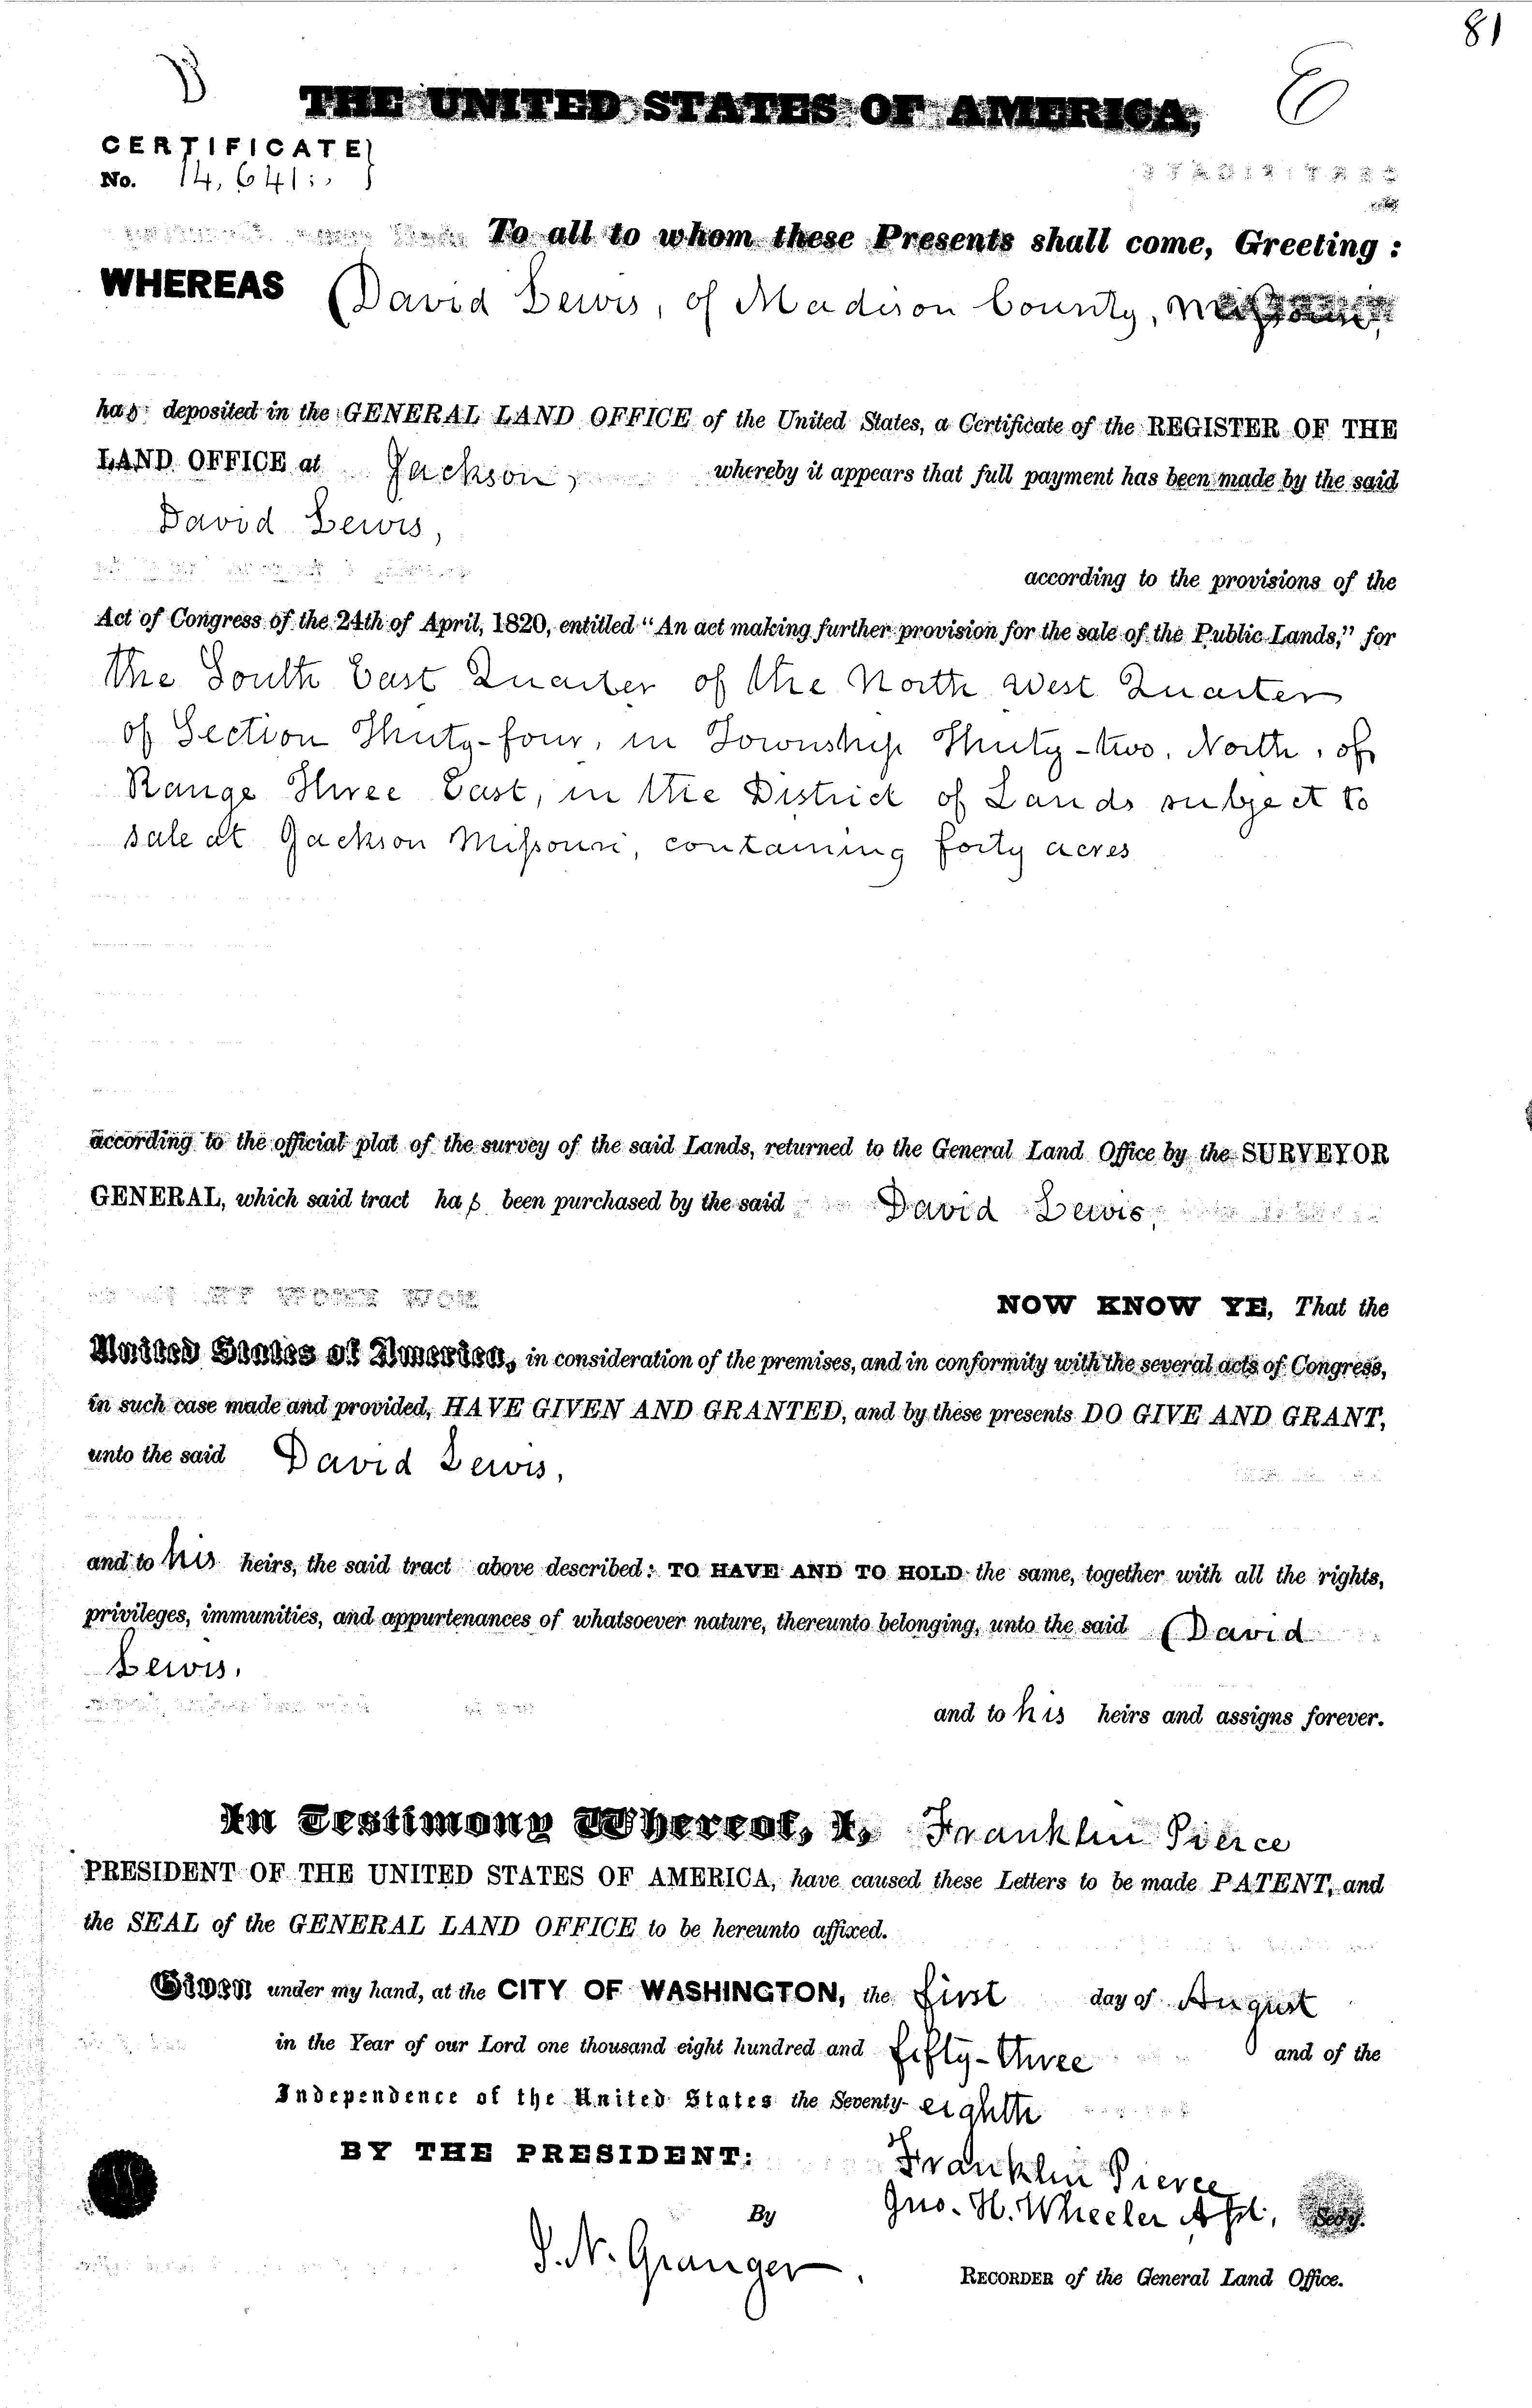 81
THE UNITED STATES OF AMERICA,
CERTIFICATE
No. 14,641
To all to whom these Presents shall come, Greeting:
WHEREAS David Lewis, of Madison County, Missouri,
has deposited in the GENERAL LAND OFFICE of the United States, a Certificate of the REGISTER OF THE
LAND OFFICE at Jackson, whereby it appears that full payment has been made by the said
David Lewis,
according to the provisions of the
Act of Congress of the 24th of April, 1820, entitled "An act making further provision for the sale of the Public Lands," for
the South East Quarter of the North West Quarter
of Section Thirty-four, in Township Thirty-two, North, of
Range Three East, in the District of Lands subject to
sale at Jackson Missouri, containing forty acres
according to the official plat of the survey of the said Lands, returned to the General Land Office by the SURVEYOR
GENERAL, which said tract has been purchased by the said David Lewis,
NOW KNOW YE, That the
United States of America, in consideration of the premises, and in conformity with the several acts of Congress,
in such case made and provided, HAVE GIVEN AND GRANTED, and by these presents DO GIVE AND GRANT,
unto the said David Lewis,
and to his heirs, the said tract above described: TO HAVE AND TO HOLD the same, together with all the rights,
privileges, immunities, and appurtenances of whatsoever nature, thereunto belonging, unto the said David
Lewis,
and to his heirs and assigns forever.
In Testimony Whereof, I, Franklin Pierce
PRESIDENT OF THE UNITED STATES OF AMERICA, have caused these Letters to be made PATENT, and
the SEAL of the GENERAL LAND OFFICE to be hereunto affixed.
Given under my hand, at the CITY OF WASHINGTON, the first day of August
in the Year of our Lord one thousand eight hundred and fifty-three and of the
Independence of the United States the Seventy-eighth
BY THE PRESIDENT: Franklin Pierce
By Jno. H. Wheeler Asst. Secy.
J. N. Granger. RECORDER of the General Land Office.